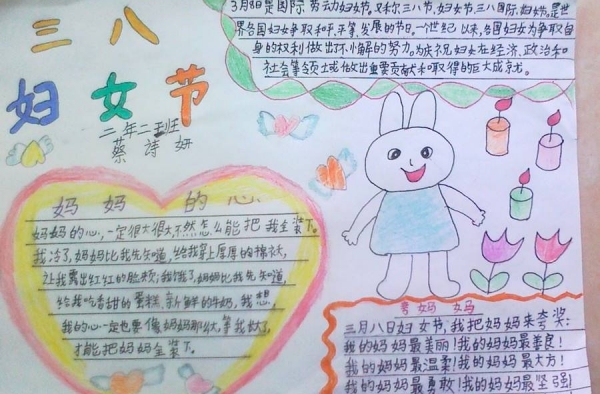 三八
妇女节
二年二班
蔡诗妍
3月8日是国际劳动妇女节,又称尔三八节,妇女节,三八国际妇女节,是世
界各国妇女争取和平,平等,发展的节日。一个世纪以来,各国妇女为争取自
身的权利做出不小解的努力。为庆祝妇女在经济,政治和
社会等领土或做出重要贡献和取得的巨大成就。
妈妈的心
妈妈的心,一定很大很大,不然怎么能把我全装下。
我冷了,妈妈比我先知道,给我穿上厚厚的棉衣,
让我露出红红的脸颊;我饿了,妈妈比我先知道,
给我吃香甜的蛋糕,新鲜的牛奶,我想,
我的心一定也要像妈妈那么大,等我大了,
才能把妈妈全装下。
夸妈妈
三月八日妇女节,我把妈妈来夸奖:
我的妈妈最美丽!我的妈妈最善良!
我的妈妈最温柔!我的妈妈最大方!
我的妈妈最勇敢!我的妈妈最坚强!